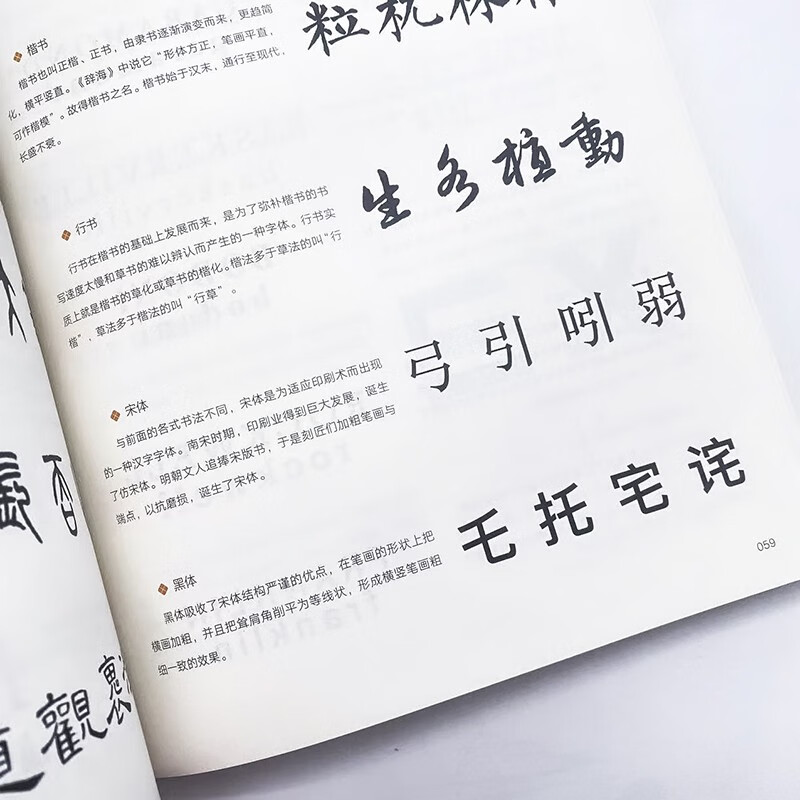 楷书
楷书也叫正楷、正书，由隶书逐渐演变而来，更趋简
化，横平竖直。《辞海》中说它“形体方正，笔画平直，
可作楷模”。故得楷书之名。楷书始于汉末，通行至现代，
长盛不衰。
行书
行书在楷书的基础上发展而来，是为了弥补楷书的书
写速度太慢和草书的难以辨认而产生的一种字体。行书实
质上就是楷书的草化或草书的楷化。楷法多于草法的叫“行
楷”，草法多于楷法的叫“行草”。
生各植動
宋体
与前面的各式书法不同，宋体是为适应印刷术而出现
的一种汉字字体。南宋时期，印刷业得到巨大发展，诞生
了仿宋体。明朝文人追捧宋版书，于是刻匠们加粗笔画与
端点，以抗磨损，诞生了宋体。
弓引吲弱
黑体
黑体吸收了宋体结构严谨的优点，在笔画的形状上把
横画加粗，并且把耸肩角削平为等线状，形成横竖笔画粗
细一致的效果。
乇托宅诧
059
否
觀